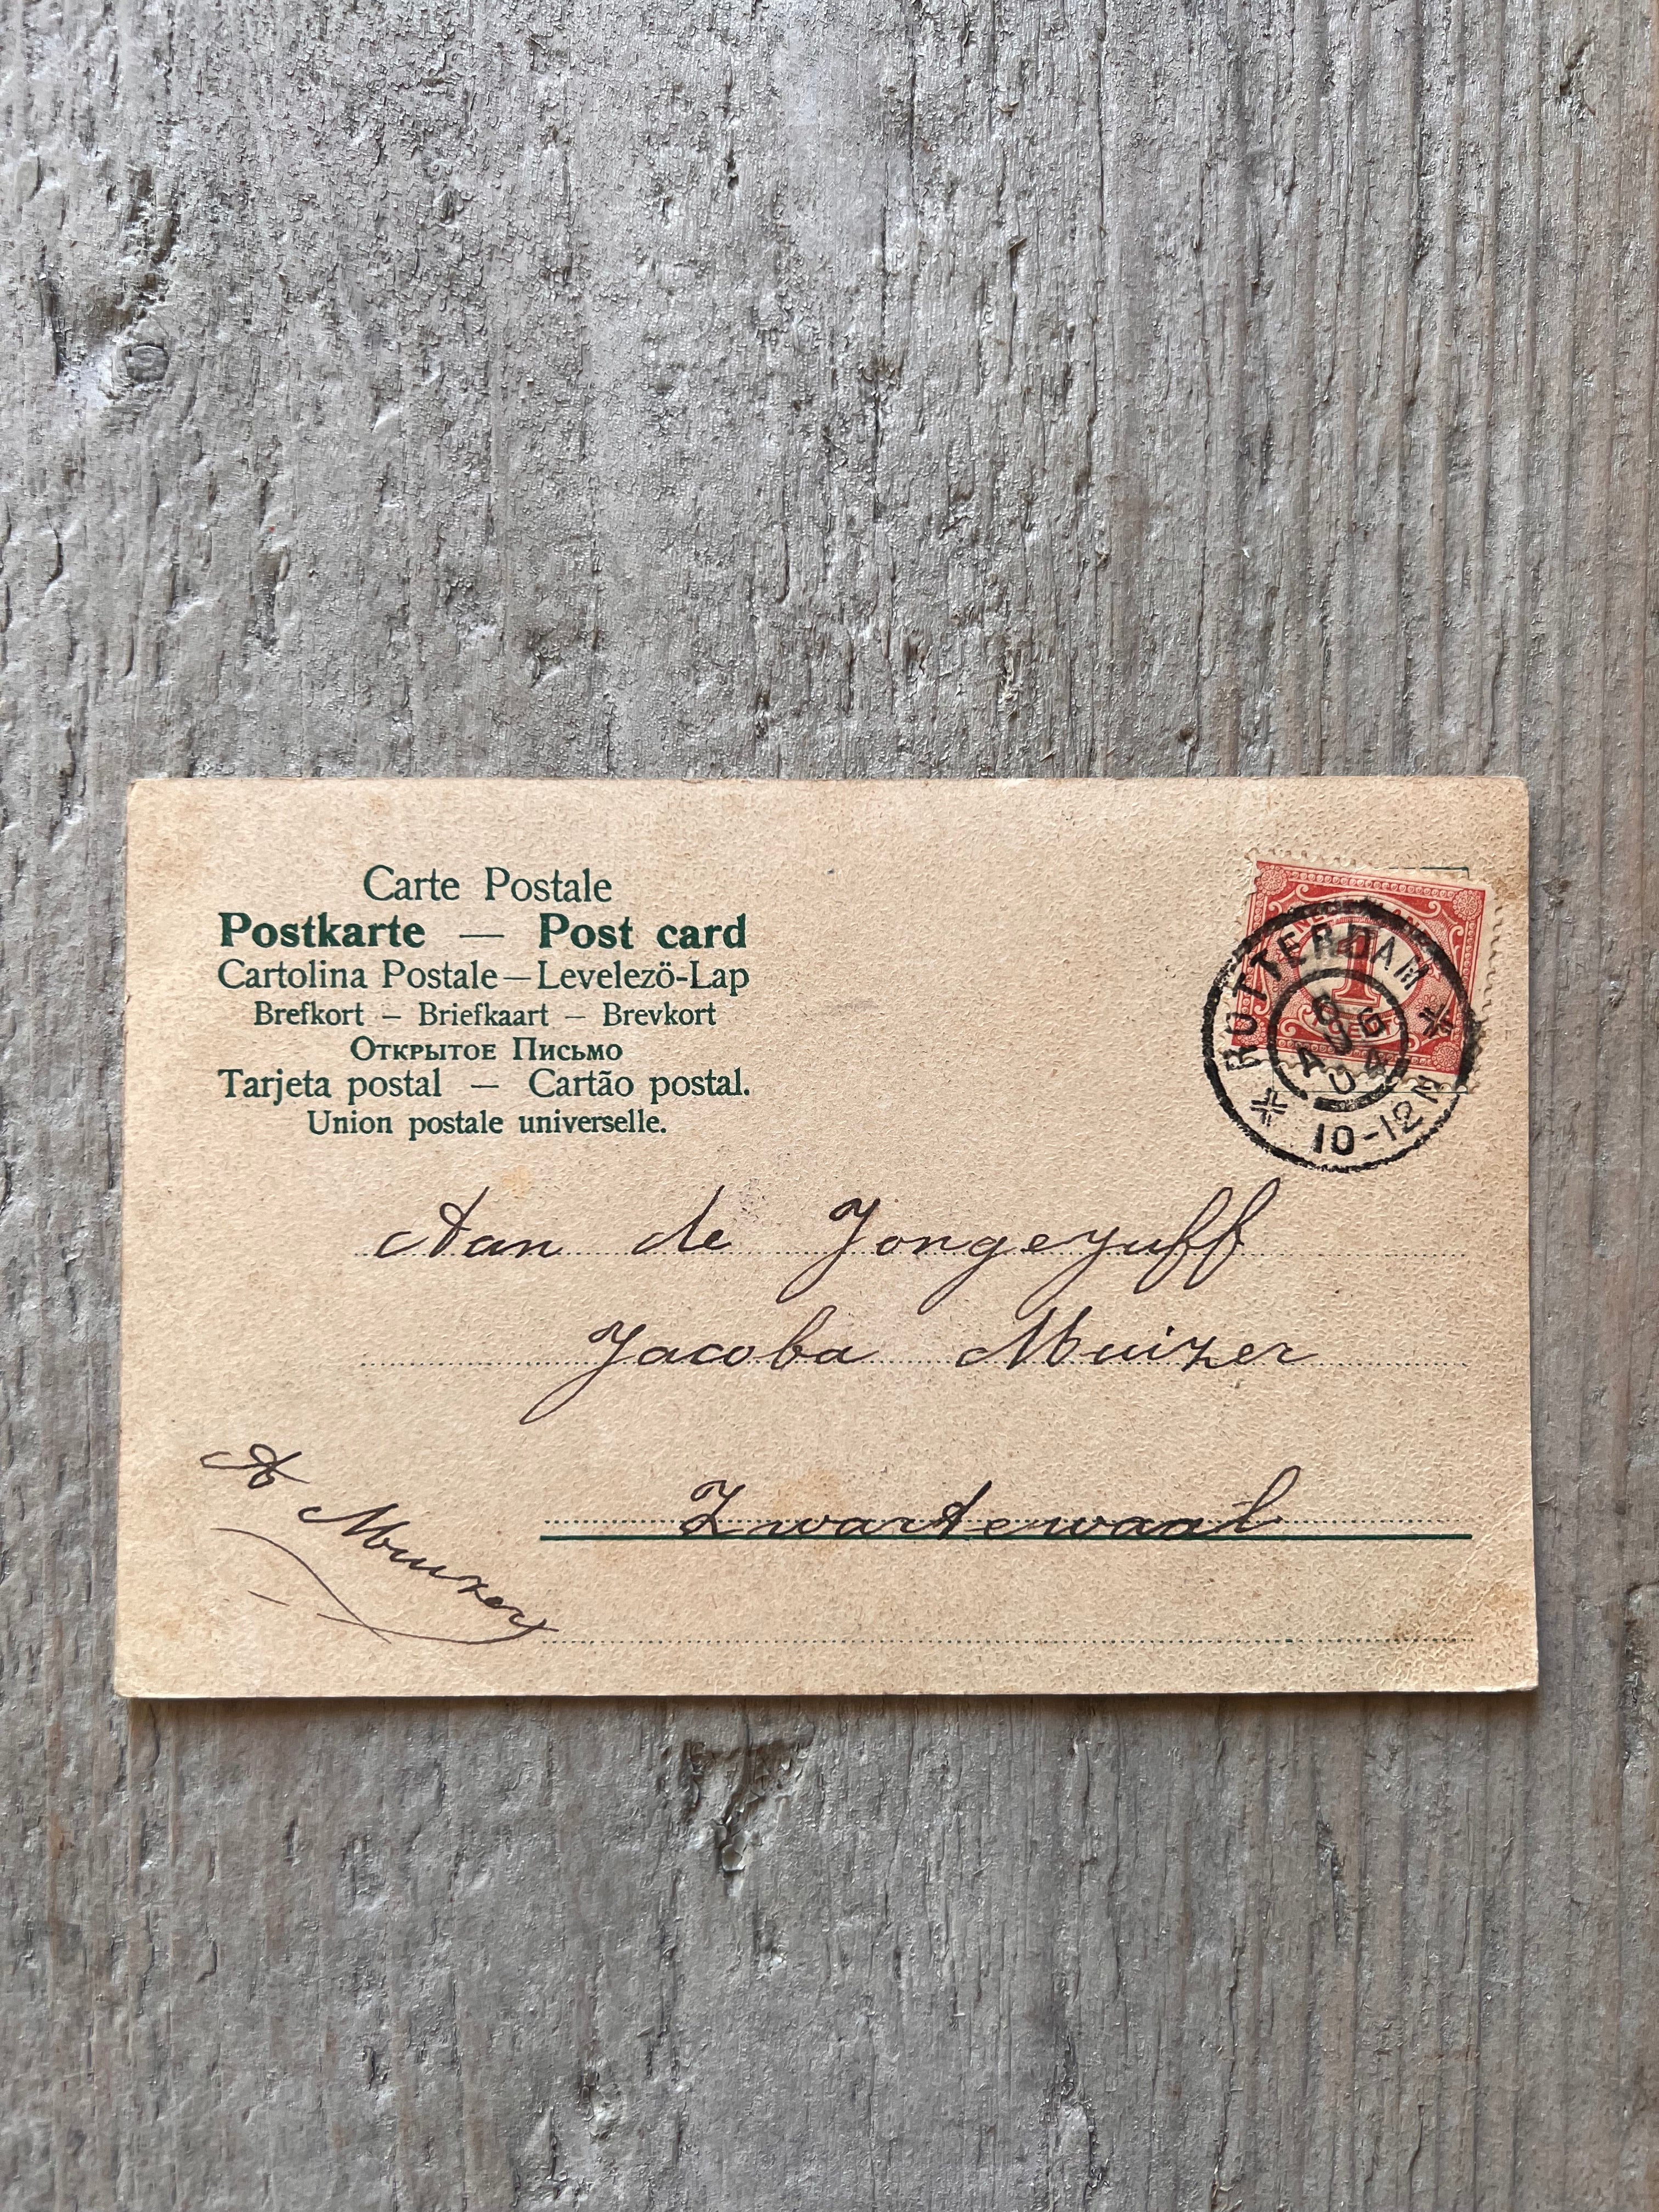 Carte Postale
Postkarte — Post card
Cartolina Postale — Levelezö-Lap
Brefkort – Briefkaart – Brevkort
Открытое Письмо
Tarjeta postal — Cartão postal.
Union postale universelle.
1
CENT
ROTTERDAM
AUG
04
10-12N
Aan de Jongejuff
Jacoba Muizer
Zwartewaal
A Muizer